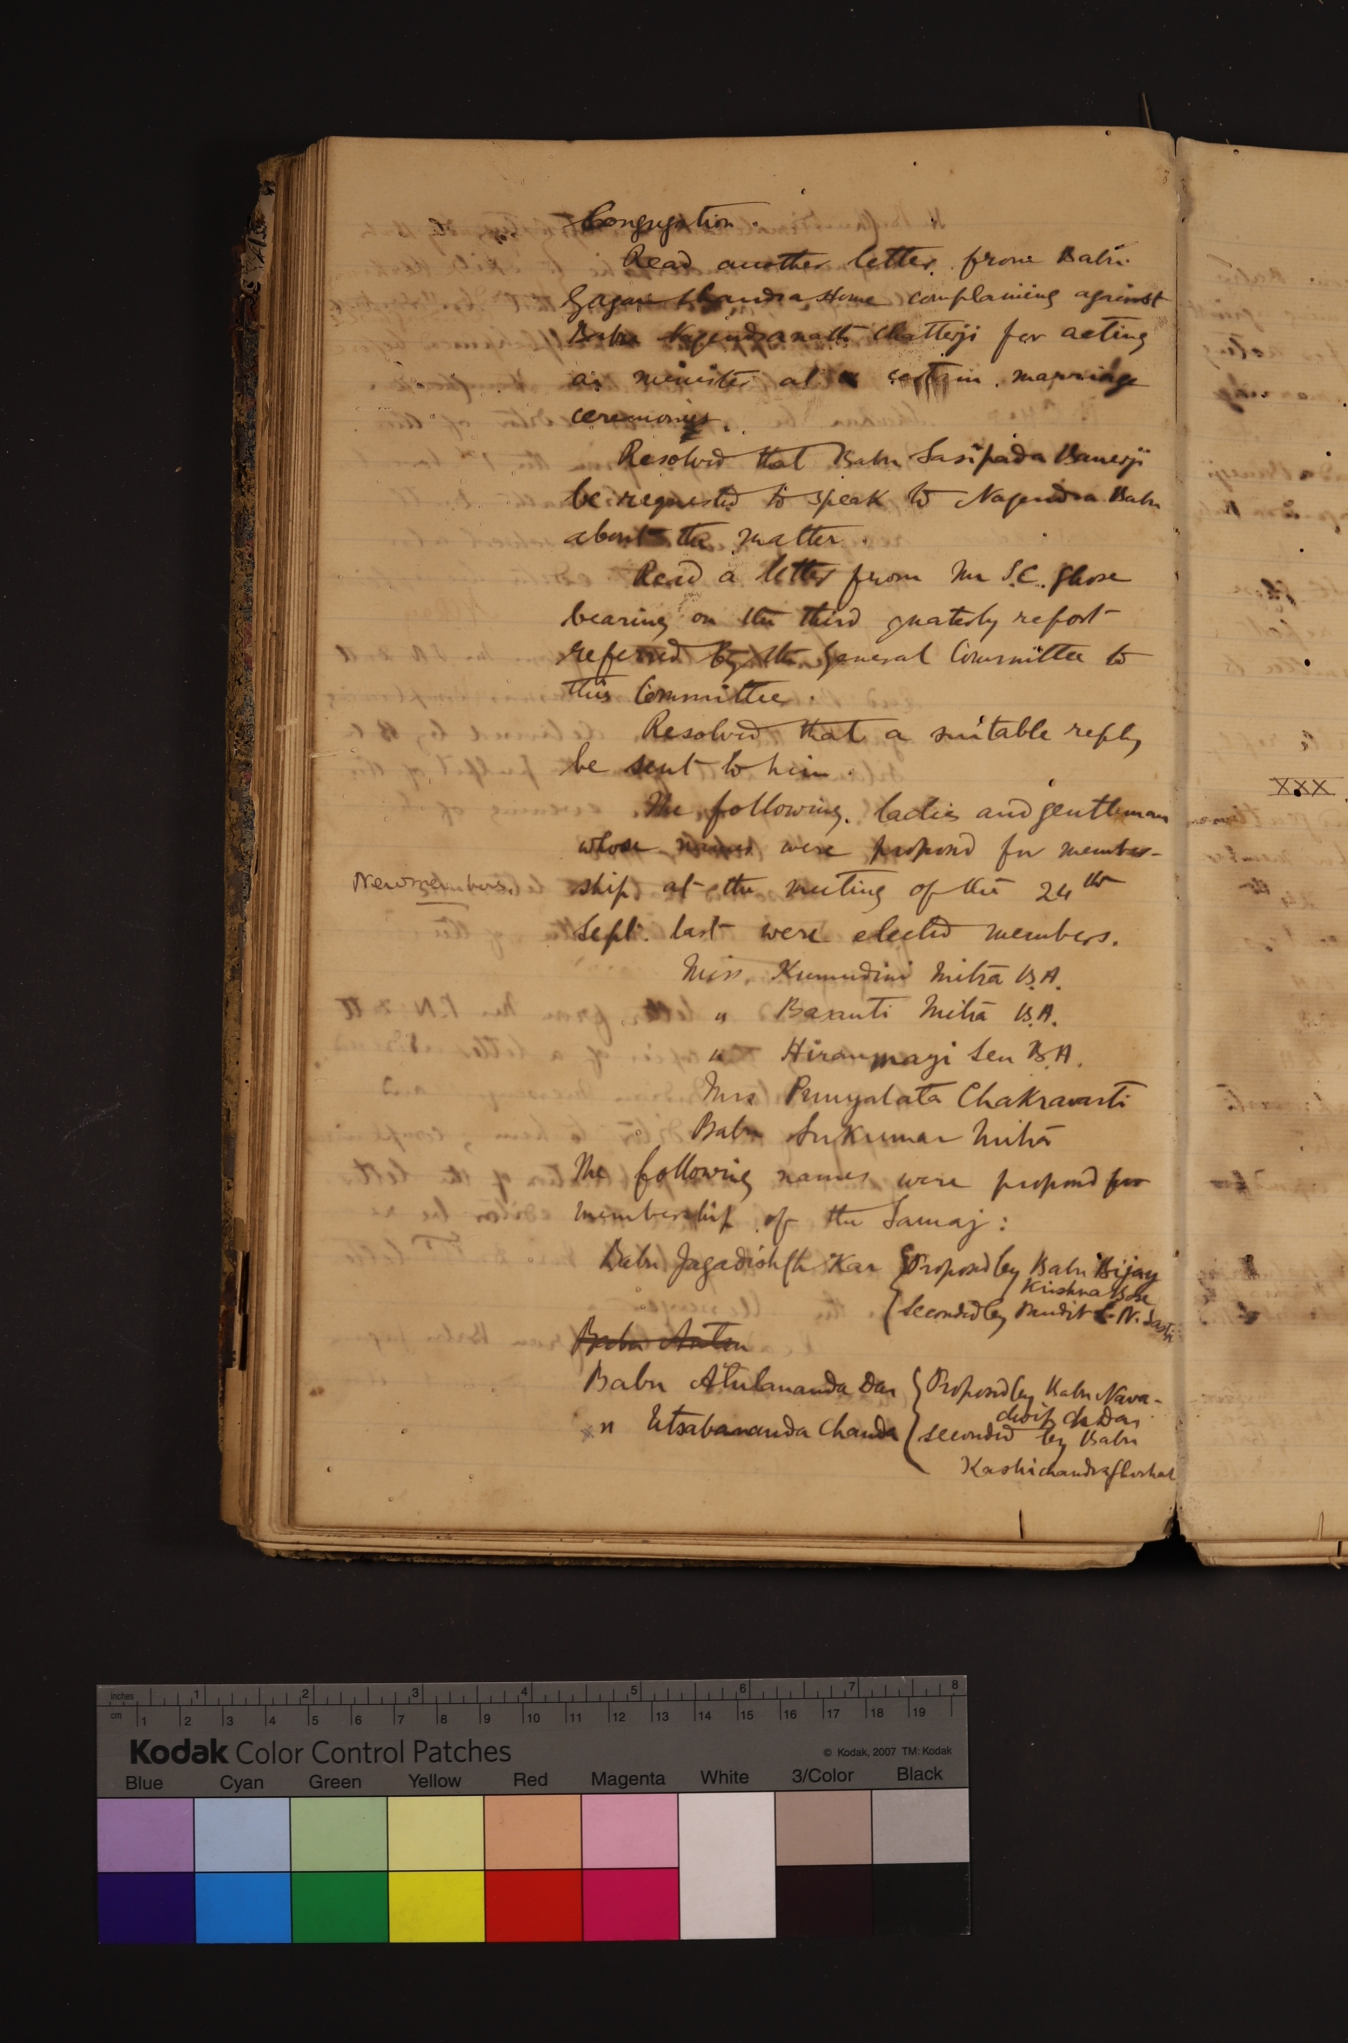 Congregation.
Read another letter from Babu
Gagan Chandra Home complaining against
Babu Nagendranath Chatterji for acting
as minister at certain marriage
ceremonies.
Resolved that Babu Sasipada Banerji
be requested to speak to Nagendra Babu
about the matter.
Read a letter from Mr S.C. Ghose
bearing on the third quaterly report
referred by the General Committee to
this Committee.
Resolved that a suitable reply
be sent to him.
The following ladies and gentleman
whose names were proposed for member-
New members.
ship at the meeting of the 24th
Sept. last were elected members.
Miss Kumudini Mitra B.A.
" Basanti Mitra B.A.
" Hiranmayi Sen B.A.
Mrs Punyalata Chakravarti
Babu Sukumar Mitra
The following names were proposed for
membership of the Samaj:
Babu Jagadish Ch Kar { Proposed by Babu Bijay
Krishna Bose
Seconded by Pandit S. N. Sastri
Babu
Babu Atulananda Das { Proposed by Babu Nava-
dwip Ch Das
" Utsabananda Chanda { seconded by Babu
Kashichandra Ghoshal
XXX
inches 1 2 3 4 5 6 7 8
cm 1 2 3 4 5 6 7 8 9 10 11 12 13 14 15 16 17 18 19
Kodak Color Control Patches
© Kodak, 2007 TM: Kodak
Blue Cyan Green Yellow Red Magenta White 3/Color Black